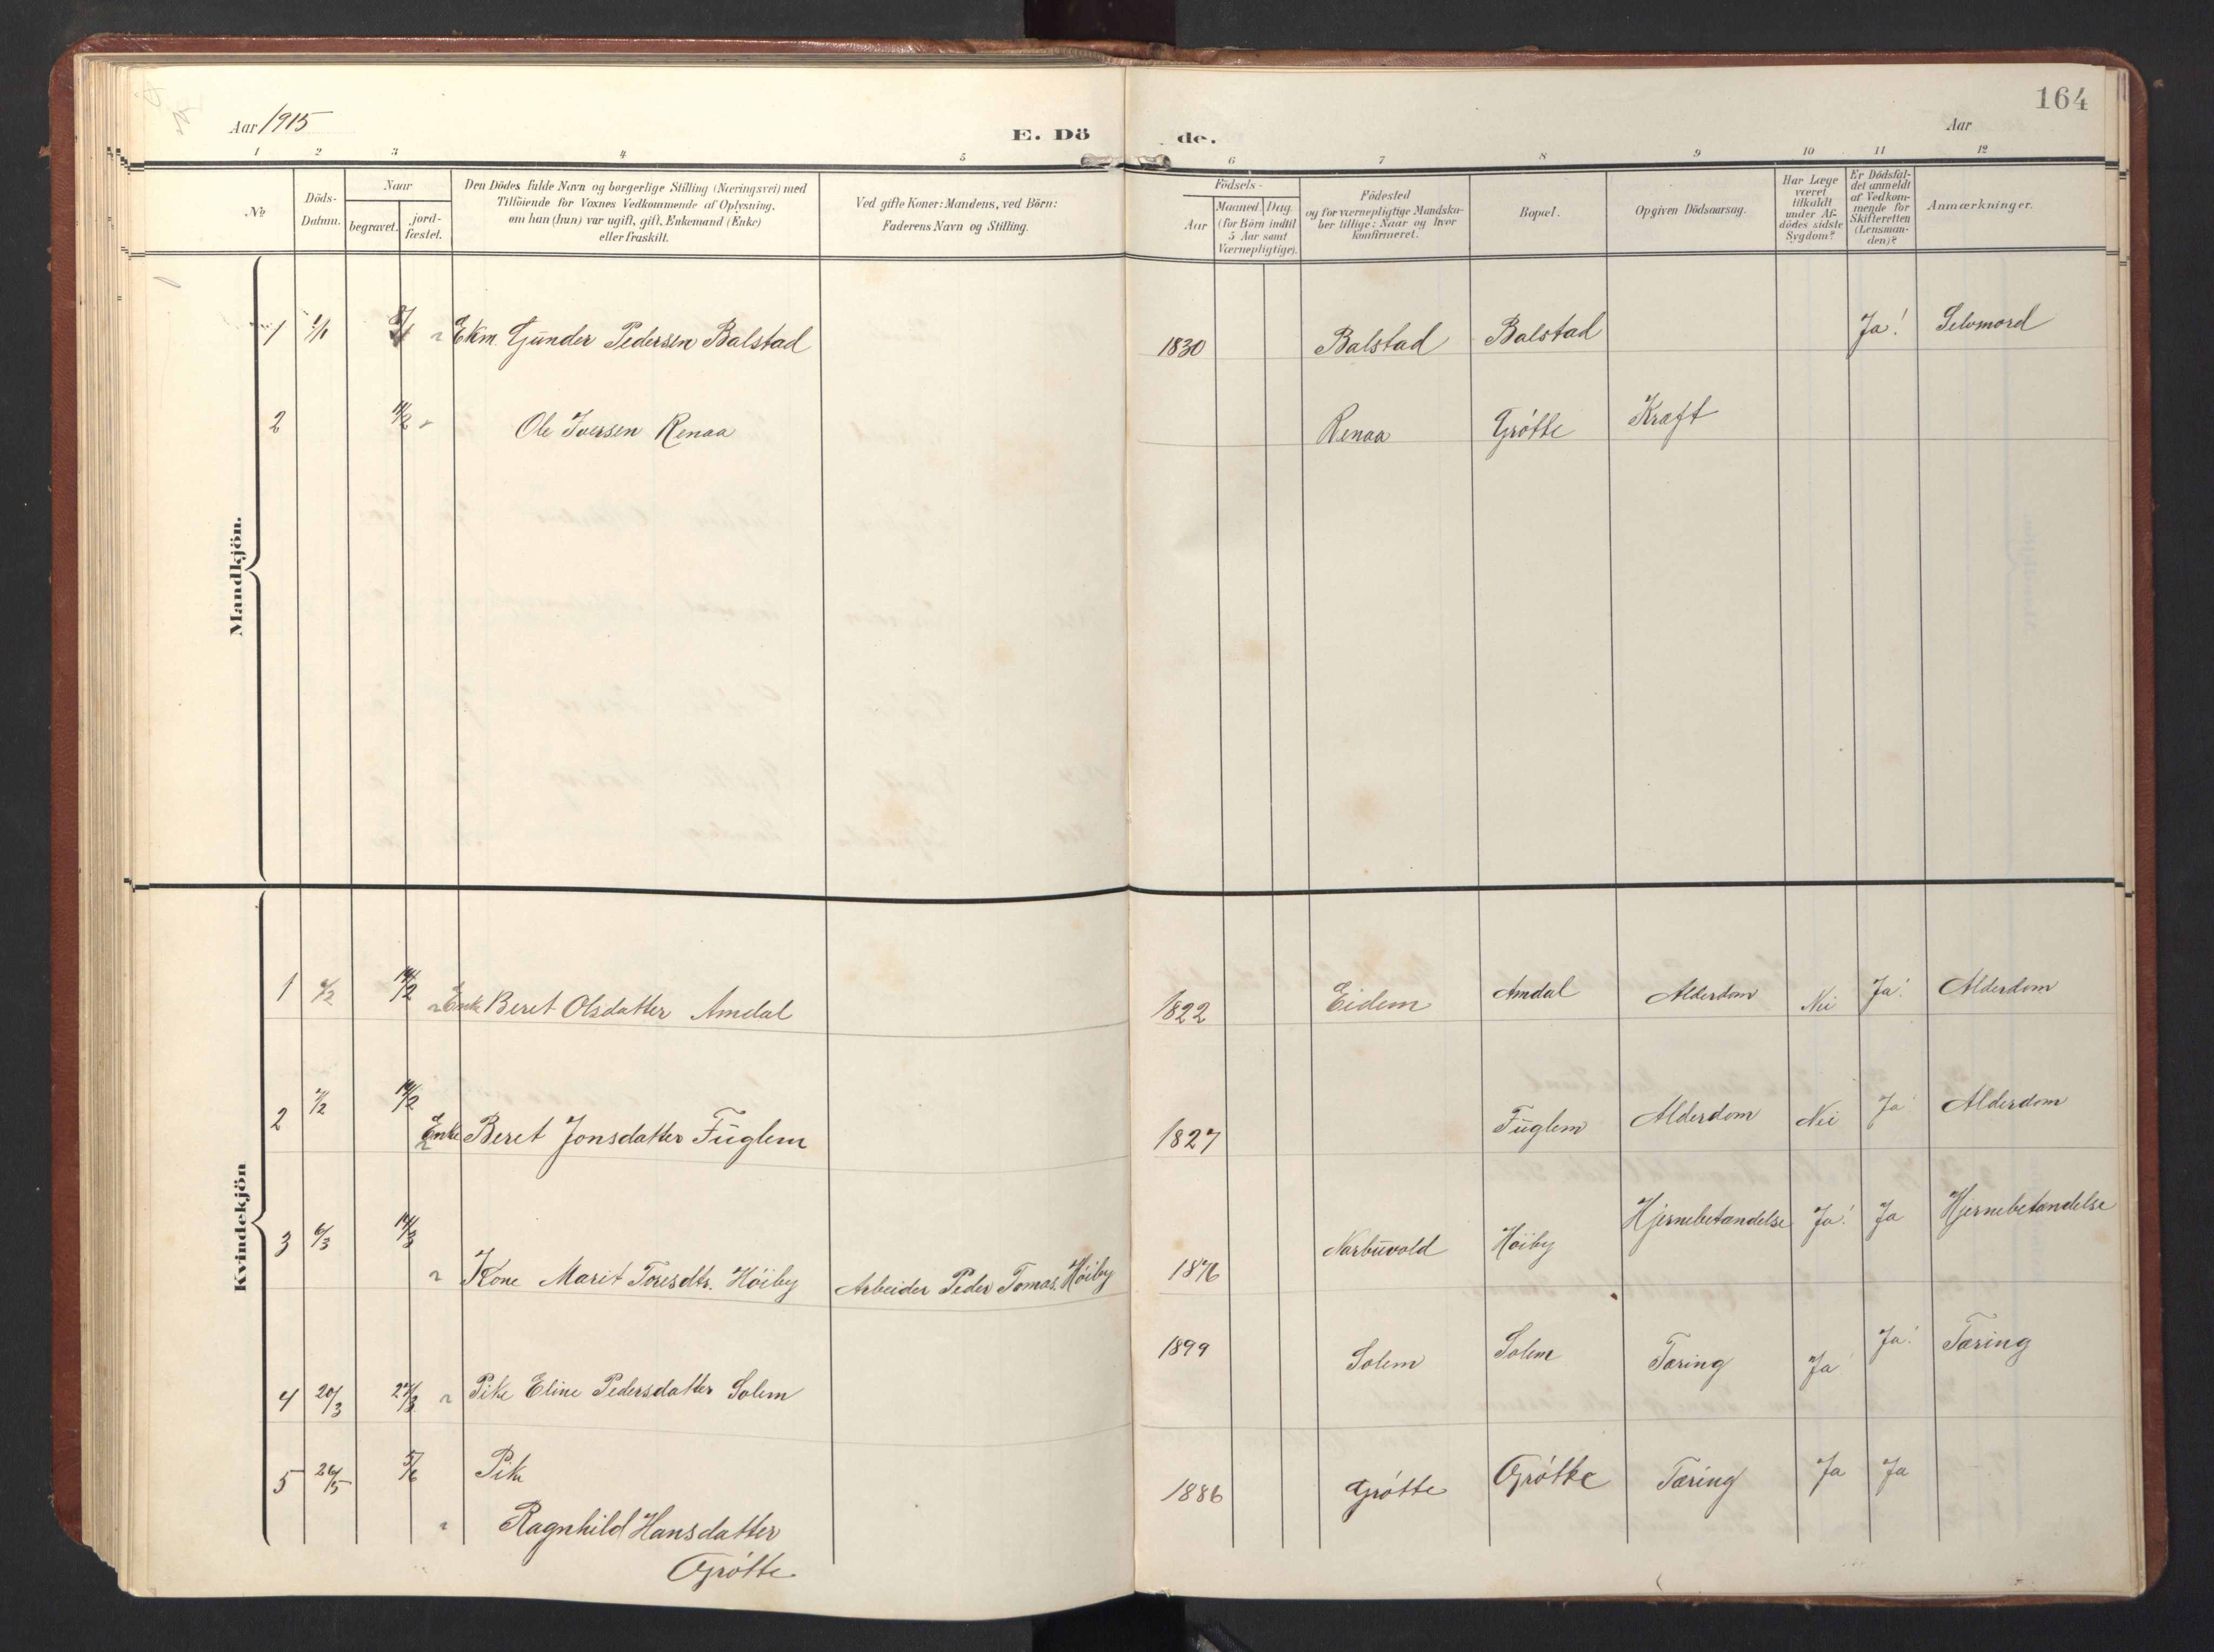 164
Aar 1915
E. Dö de.
Aar
1 2 3 4 5 6 7 8 9 10 11 12
№
Döds-
Datum.
Naar
begravet.
jord-
fæstet.
Den Dödes fulde Navn og borgerlige Stilling (Næringsvei) med
Tilföiende for Voxnes Vedkommende af Oplysning,
om han (hun) var ugift, gift, Enkemand (Enke)
eller fraskilt.
Ved gifte Koner: Mandens, ved Börn:
Faderens Navn og Stilling.
Födsels-
Aar
Maaned. Dag.
(for Börn indtil
5 Aar samt
Værnepligtige).
Födested
og for værnepligtige Mandska-
ber tillige: Naar og hvor
konfirmeret.
Bopæl.
Opgiven Dödsaarsag.
Har Læge
været
tilkaldt
under Af-
dödes sidste
Sygdom?
Er Dödsfal-
det anmeldt
af Vedkom-
mende for
Skifteretten
(Lensman-
den)?
Anmærkninger.
Mandkjön.
1 1/1 Ekm. Gunder Pedersen Balstad 1830 Balstad Balstad Ja! Selvmord
2 Ole Iversen Renaa Renaa Grótte Kræft
Kvindekjön
1 14/2 Enke Beret Olsdatter Amdal 1822 Eidem Amdal Alderdom Nei Ja! Alderdom
2 14/2 Enke Beret Jonsdatter Fuglem 1827 Fuglem Alderdom Nei Ja! Alderdom
3 6/3 14/3 Kone Marit Toresdtr. Höiby Arbeider Peder Tomas. Höiby 1876 Narbuvold Höiby Hjernebetændelse Ja! Ja Hjernebetændelse
4 20/3 27/3 Pike Eline Pedersdatter Solem 1899 Solem Solem Tæring Ja Ja! Tæring
5 26/5 5/6 Pike
Ragnhild Hansdatter
Grótte 1886 Grótte Grótte Tæring Ja Ja